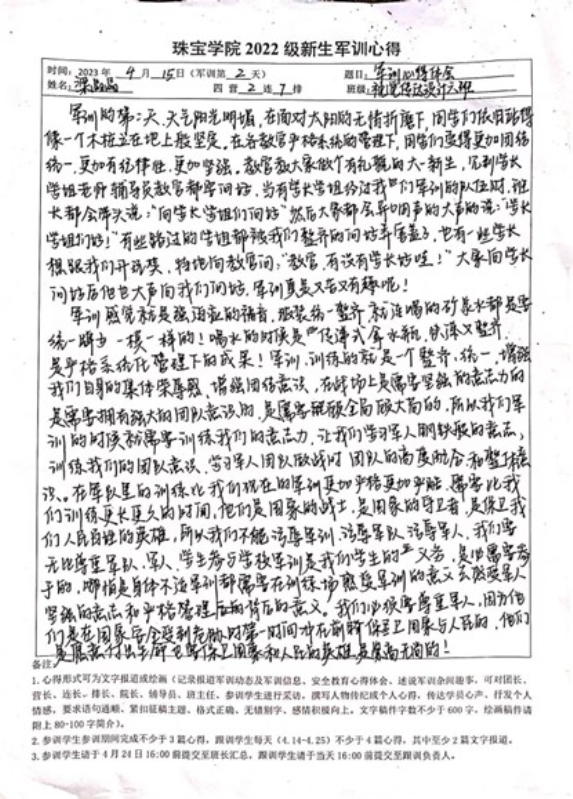 珠宝学院 2022 级新生军训心得
时间：2023 年 4 月 15 日（军训第 2 天） 题目：军训心得体会
姓名： 四 营 2 连 7 排 班级：视觉传达设计六班
军训的第二天，天气阳光明媚，在面对太阳的无情折磨下，同学们依旧站得
像一个木桩立在地上般坚定。在各教官严格系统的管理下，同学们变得更加团结
统一，更加有纪律性，更加坚强。教官教大家做个有礼貌的大一新生，见到学长
学姐老师辅导员教官都要问好，当有学长学姐经过我们军训的队伍时，班
长都会带头说：“向学长学姐们问好”然后大家都会异口同声的大声的说：“学长
学姐们好！”有些路过的学姐都被我们整齐的问好弄害羞了，也有一些学长
想跟我们开玩笑，特地问教官：“教官，有没有学长好哇！”大家向学长
问好后他也大声向我们问好。军训真是又苦又有趣呢！
军训感觉就是强迫症的福音，服装统一整齐，就连喝的矿泉水都是要
统一牌子一模一样的！喝水的时候是“传递式拿水瓶，快速又整齐，
是严格系统化管理下的成果！军训，训练的就是一个整齐，统一，增强
我们自身的集体荣辱感，增强团结意识，在战场上是需要坚强的意志力的
是需要拥有强大的团队意识的，是需要兼顾全局顾大局的，所以我们军
训的时候就需要训练我们的意志力，让我们学习军人钢铁般的意志，
训练我们的团队意识，学习军人团队做战时团队的高度配合和整体意
识。在军队里的训练比我们现在的军训更加严格更加严酷，需要比我
们训练更长更久的时间，他们是国家的战士，是国家的守卫者，是保卫我
们人民百姓的英雄，所以我们不能诋毁军训，诋毁军队，诋毁军人，我们要
无比尊重军队，军人，学生参与学校军训是我们学生的义务，是必需参
于的，哪怕是身体不适军训都需要在训练场感受军训的意义去感受军人
坚强的意志和严格管理后的背后的意义。我们必须要尊重军人，因为他
们是在国家安全受到危险时第一时间冲在前面保卫国家与人民的，他们
是愿意付出生命也要保卫国家和人民的英雄是崇高无尚的！
备注：
1. 心得形式可为文字报道或绘画（记录报道军训动态及军训信息、安全教育心得体会、述说军训杂闻趣事，可对团长、
营长、连长、排长、院长、辅导员、班主任、参训学生进行采访，撰写人物传纪或个人心得，传达学员心声、抒发个人
情感，要求语句通顺、紧扣征稿主题、格式正确、无错别字、感情积极向上。文字稿件字数不少于 600 字，绘画稿件请
附上 80-100 字简介）。
2. 参训学生参训期间完成不少于 3 篇心得，跟训学生每天（4.14-4.25）不少于 4 篇心得，其中至少 2 篇文字报道。
3. 参训学生请于 4 月 24 日 16:00 前提交至班长汇总，跟训学生请于当天 16:00 前提交至跟训负责人。